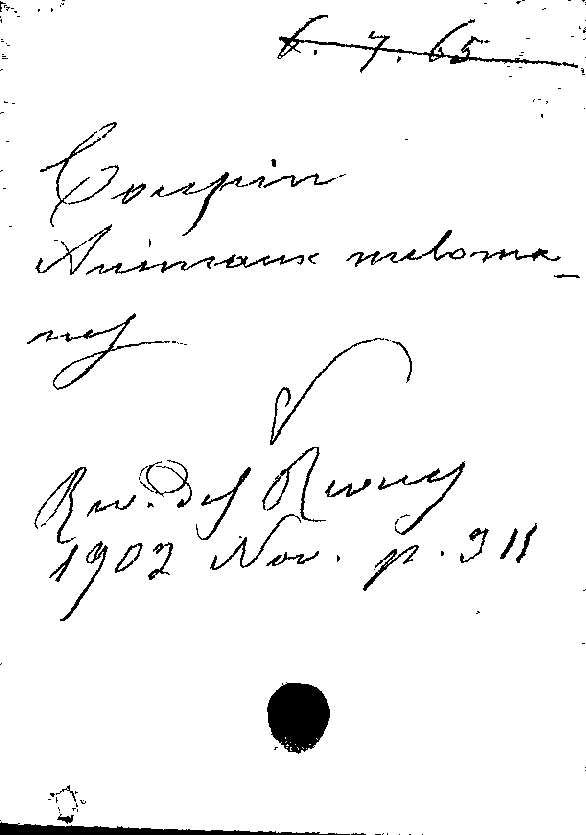 6. 7. 65
Coupin
Animaux meloma-
nes
Rev. des Revues
1902 Nov. p. 311